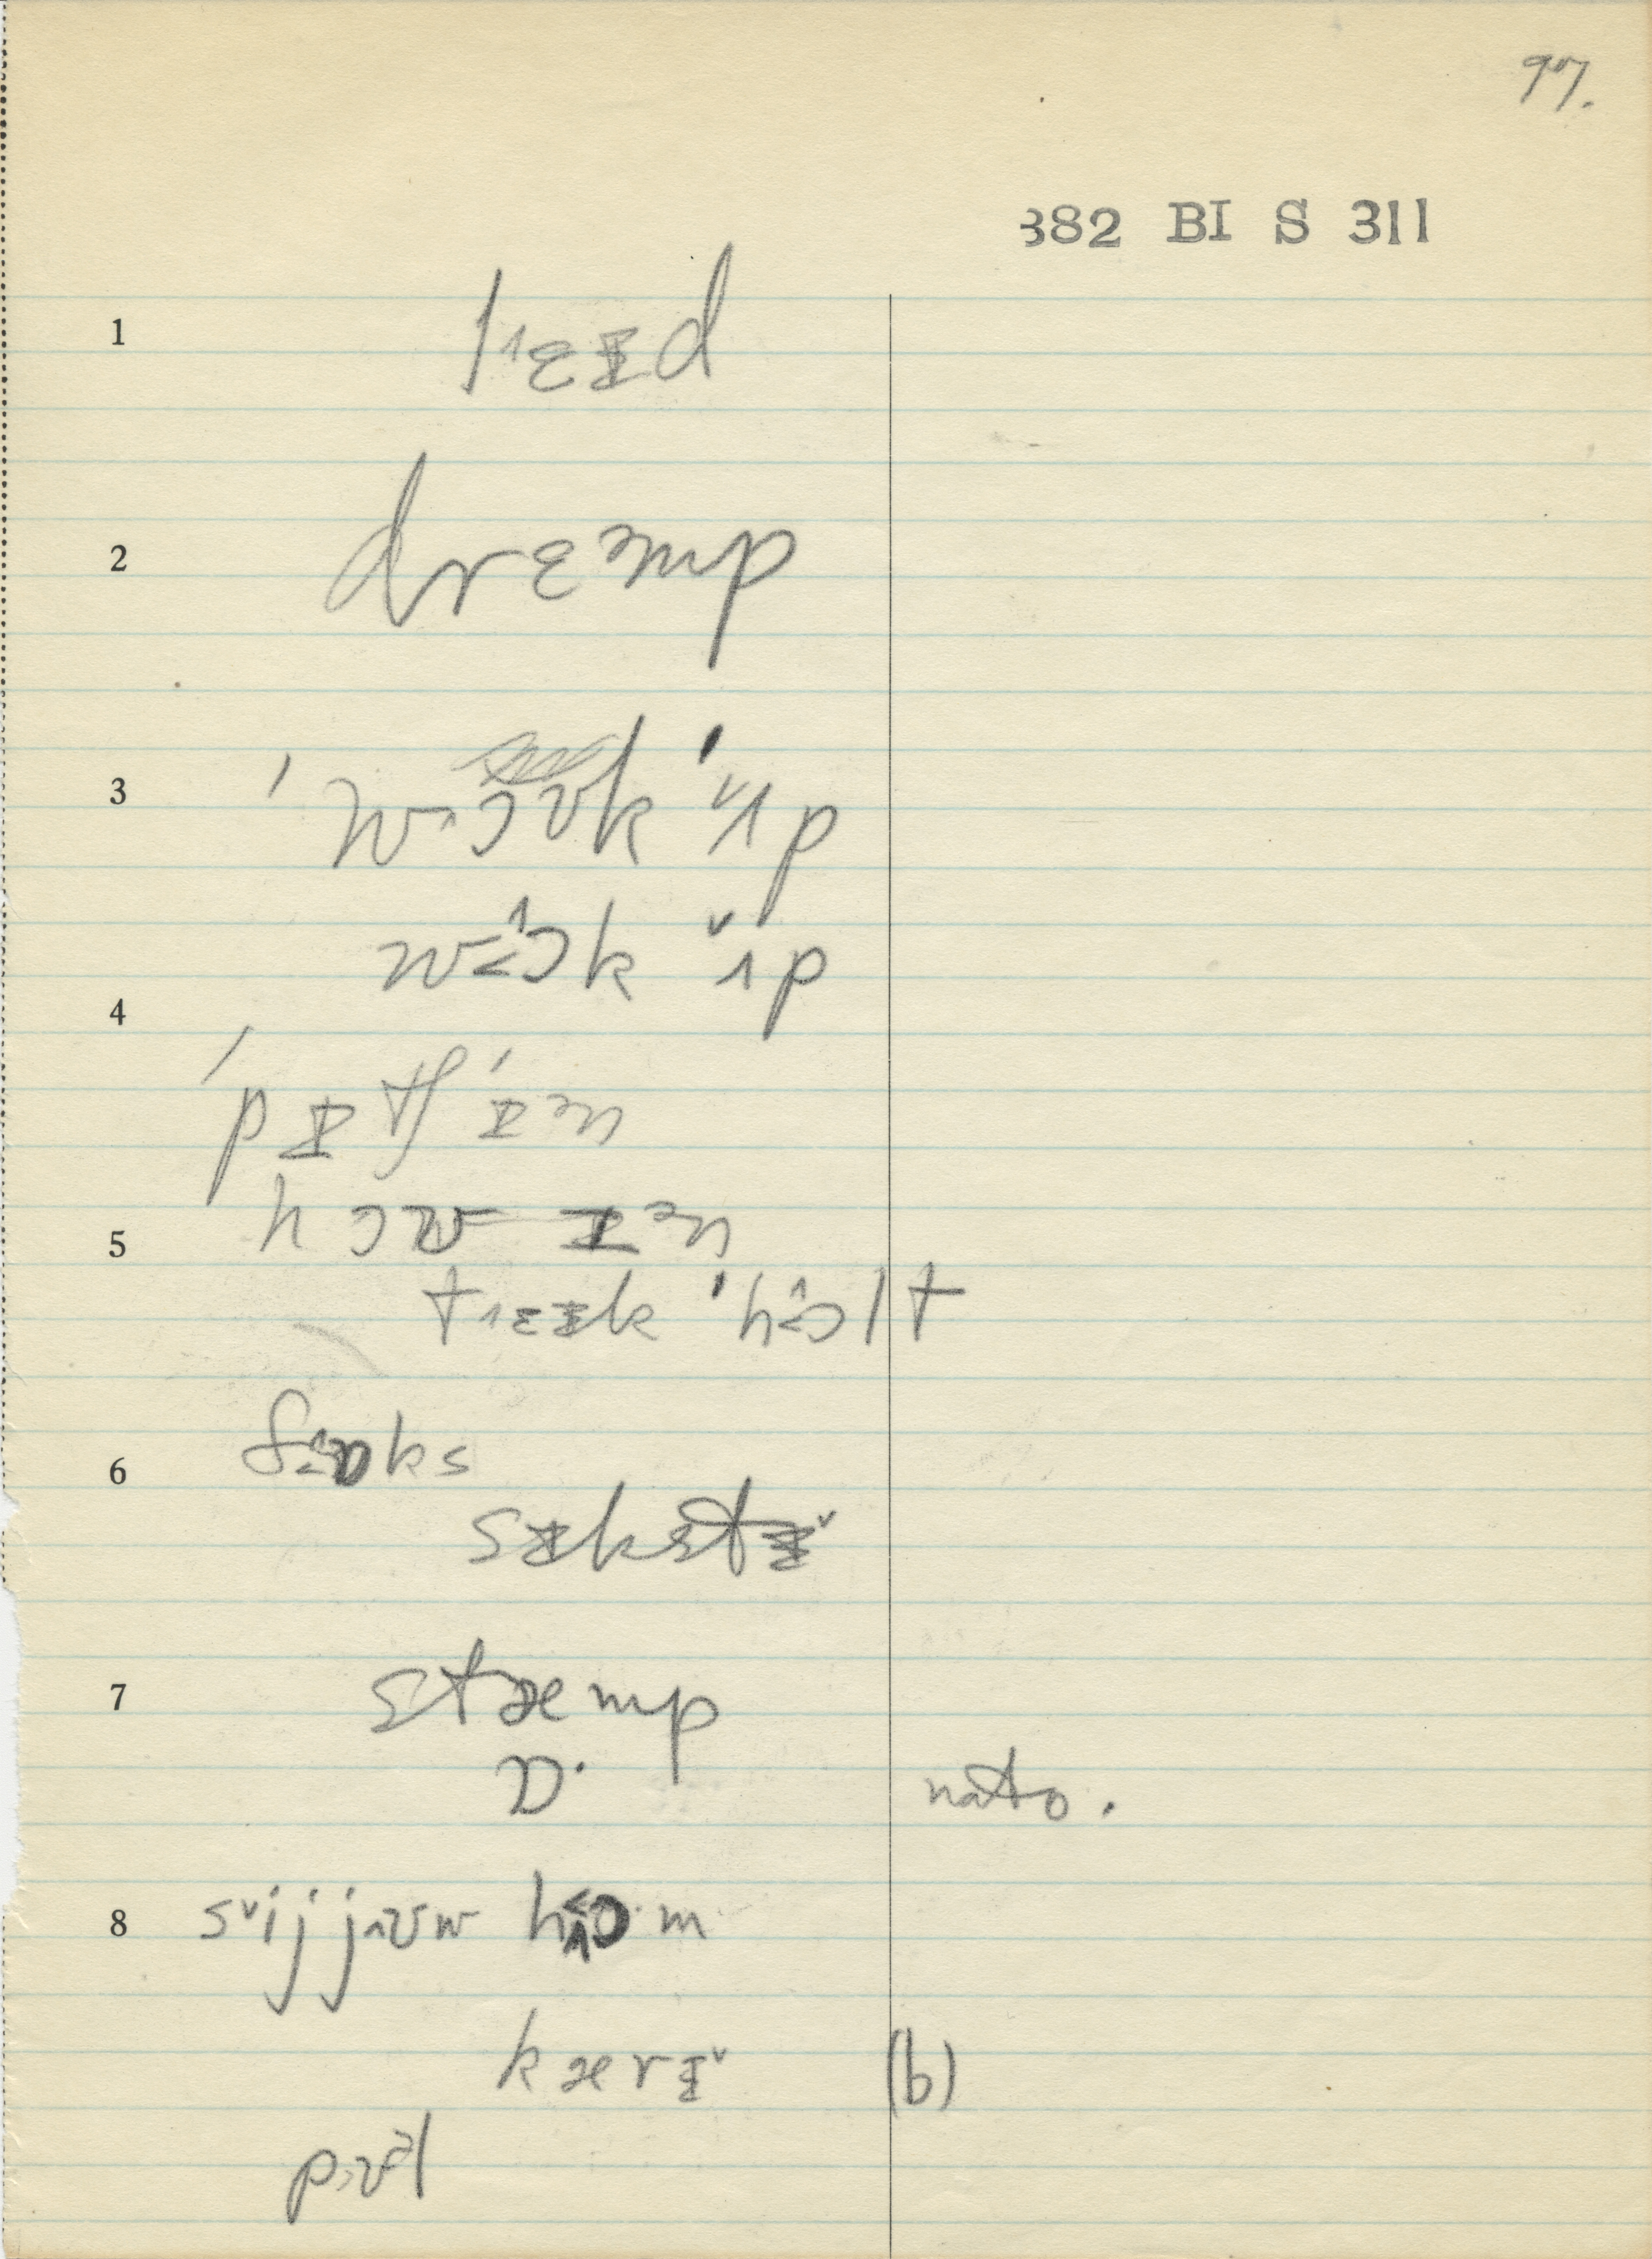 97.
382 BI S 311
1 l˄ɛɪd
2 drɛmp
3 ˈwɔʊk ˈʌp
wɔk ʌp
4 ˈpɪtʃˈɪn
5 hɔʊɪn
t˄ɛɪk ˈhɔlt
6 fɒks
sɪkstɪ˅
7 stæmp
ɒ· nato.
8 s˅ijj˄ʊw hɔ·m
kærɪ˅ (b)
pʊəl